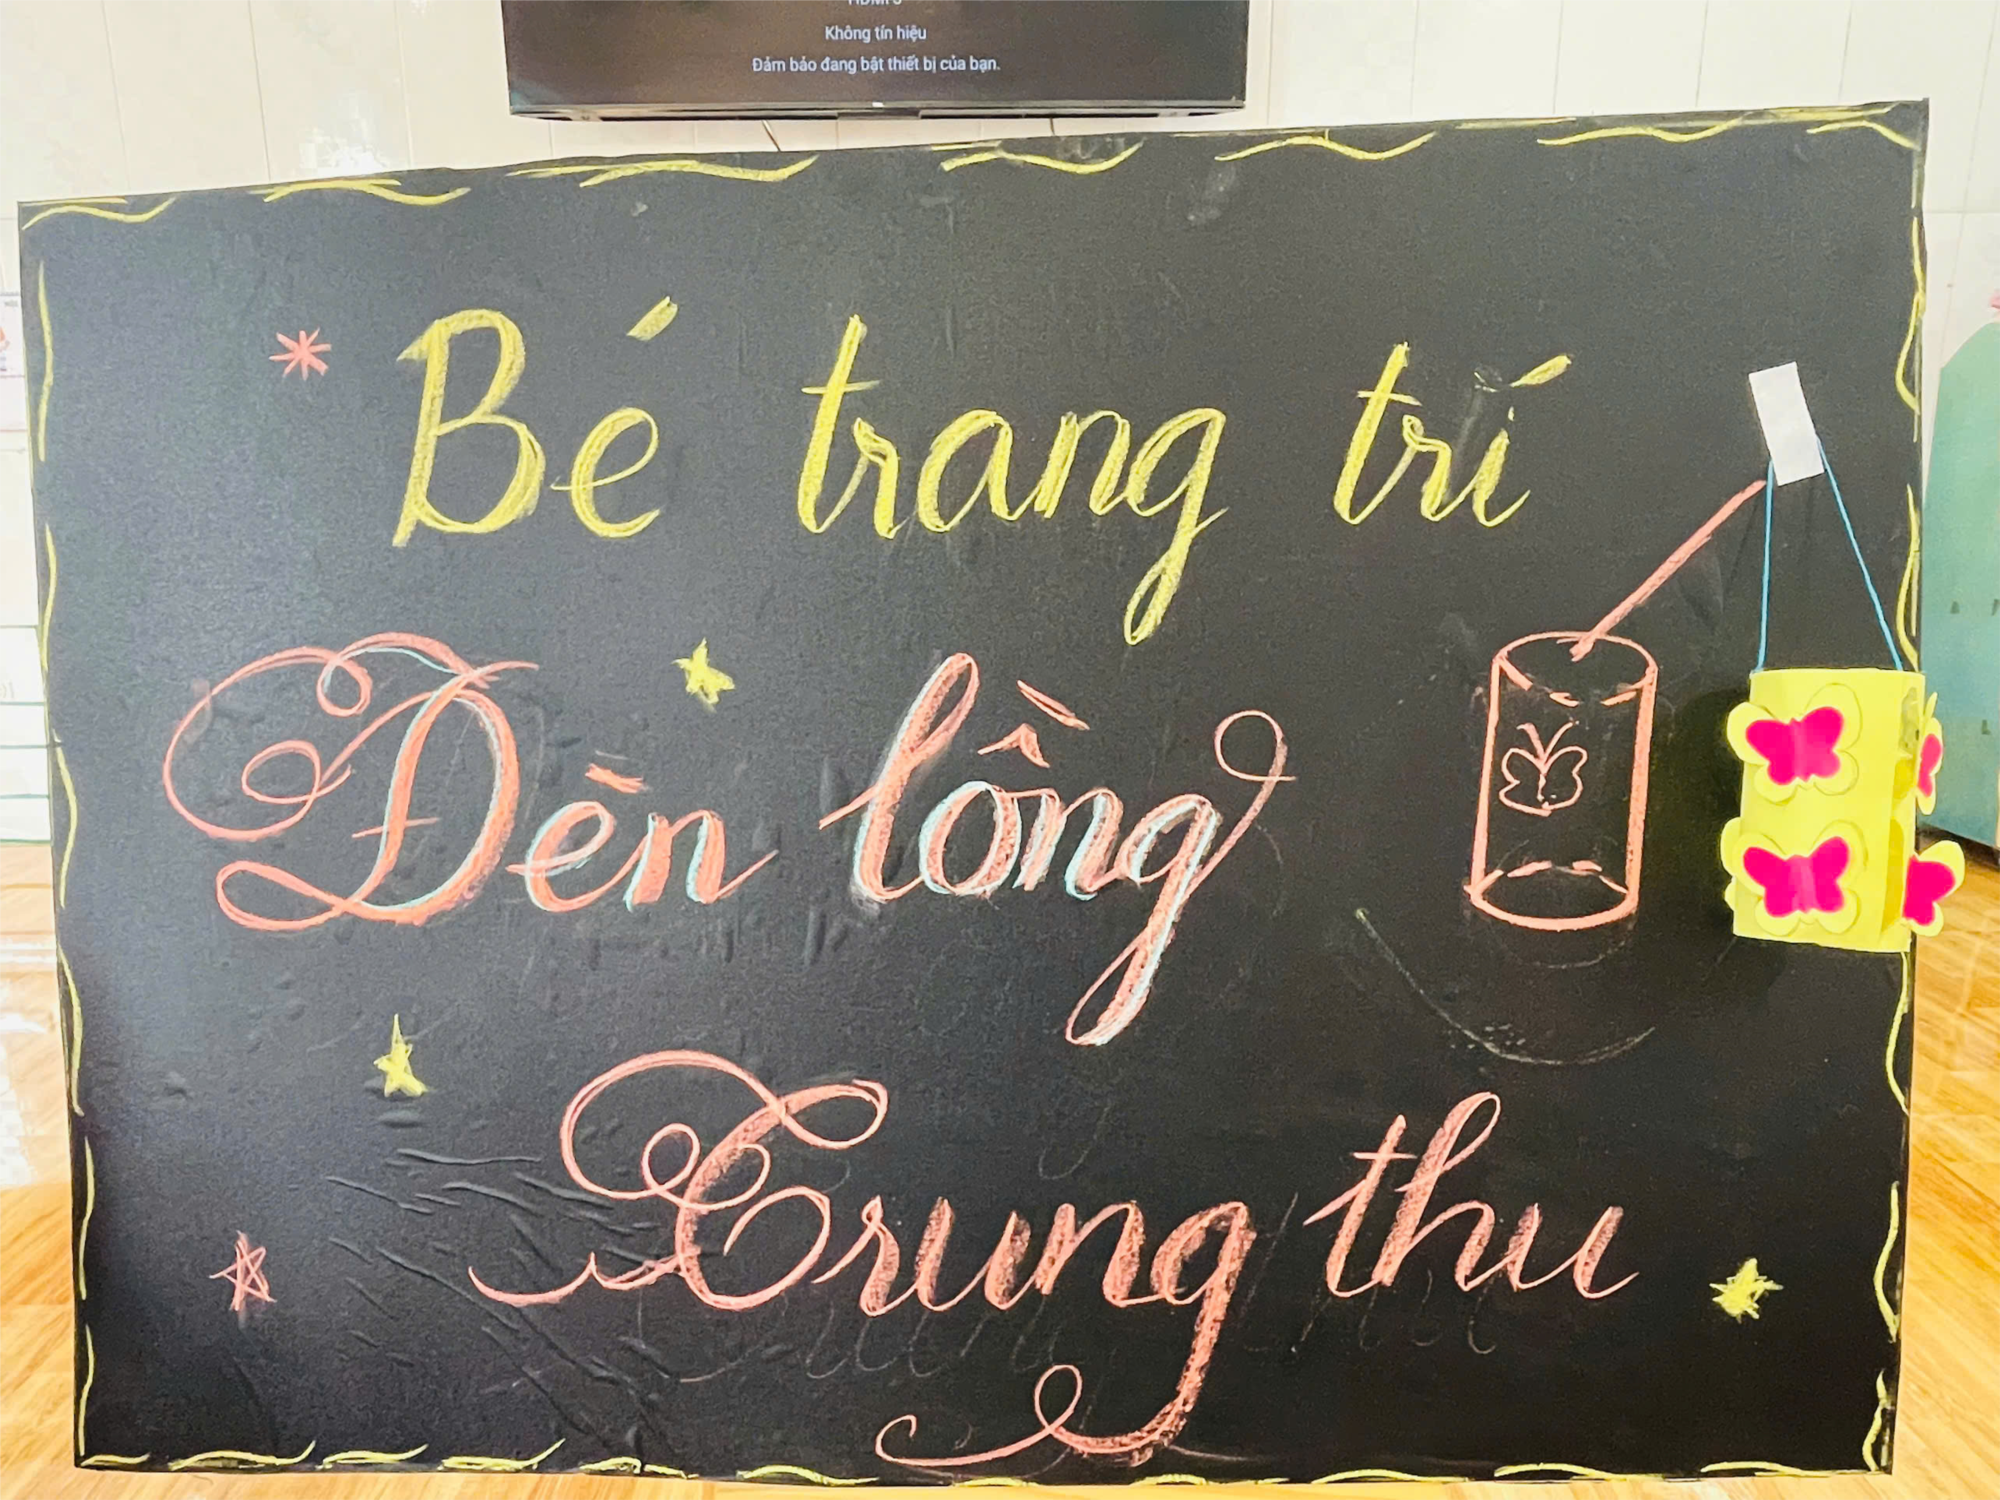 Không tín hiệu
Đảm bảo đang bật thiết bị của bạn.
Bé trang trí
Đèn lồng
Trung thu